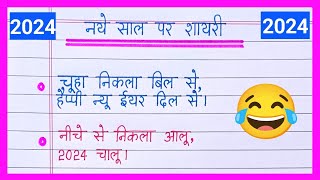 2024 नये साल पर शायरी 2024
चूहा निकला बिल से,
हैप्पी न्यू ईयर दिल से।
नीचे से निकला आलू,
2024 चालू।